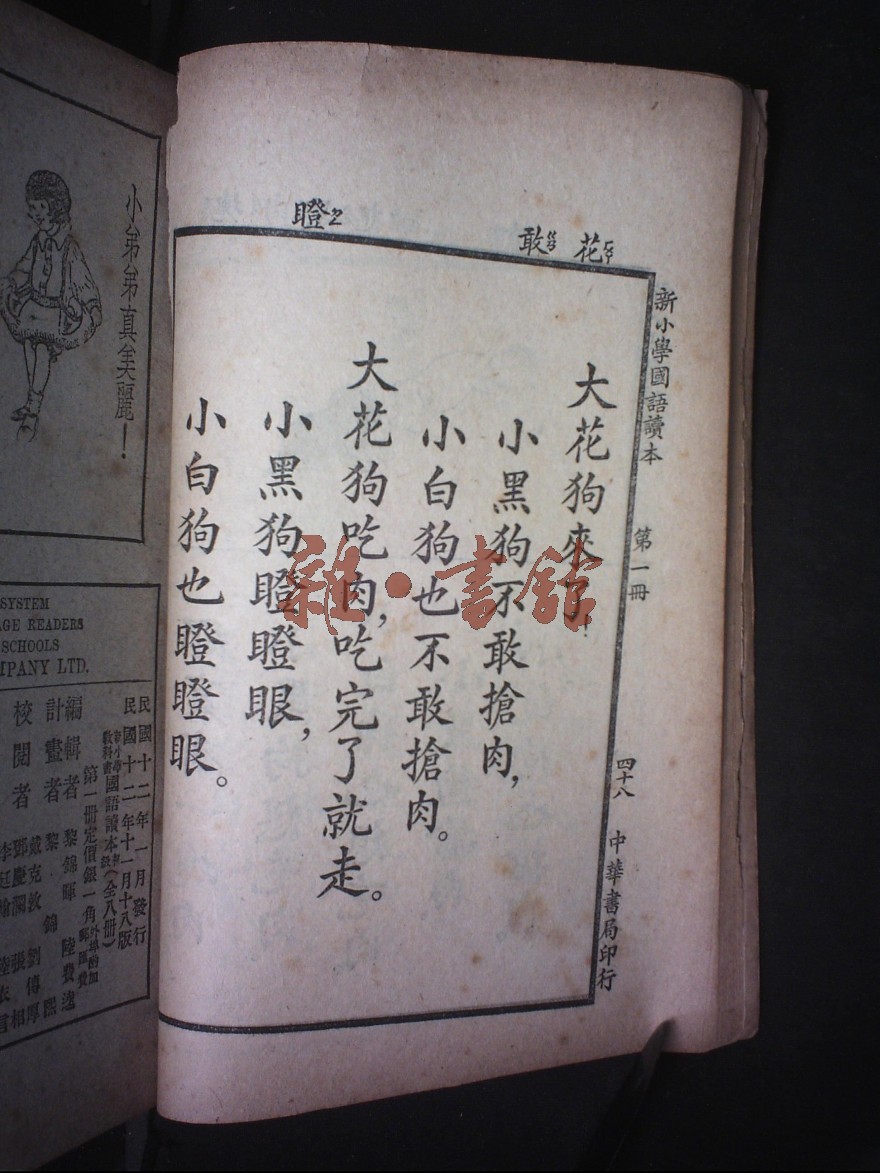 新小學國語讀本 第一冊 四十八 中華書局印行
花
敢
瞪
大花狗來了!
小黑狗不敢搶肉,
小白狗也不敢搶肉。
大花狗吃肉,吃完了就走。
小黑狗瞪瞪眼,
小白狗也瞪瞪眼。
雜·書館
小弟弟真美麗!
SYSTEM
AGE READERS
SCHOOLS
MPANY LTD.
民國十二年一月發行
民國十二年十一月十八版
新小學教科書國語讀本(全八冊)
第一冊定價銀一角
編輯者 黎錦暉 陸費逵
計畫者 黎錦熙
校閱者 戴克敦 劉傳厚
鄧慶瀾 張相